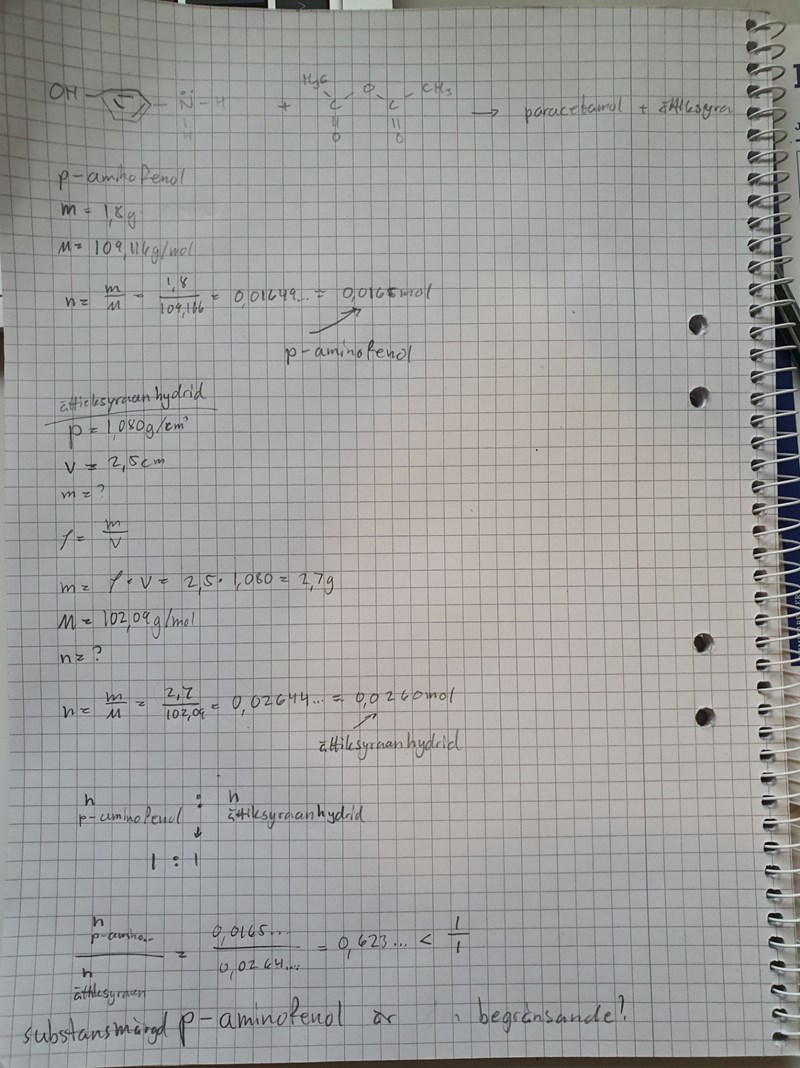 OH N̈ - H + H₃C C O C CH₃ → paracetamol + ättiksyra
H O O
p-aminofenol
m = 1,8g
M = 109,116g/mol
n = m/M = 1,8/109,166 = 0,01649... = 0,0165mol
p-aminofenol
ättiksyraanhydrid
ρ = 1,080g/cm³
V = 2,5cm
m = ?
ρ = m/V
m = ρ · V = 2,5 · 1,080 = 2,7g
M = 102,09g/mol
n = ?
n = m/M = 2,7/102,09 = 0,02644... = 0,0260mol
ättiksyraanhydrid
n : n
p-aminofenol ättiksyraanhydrid
1 : 1
n p-amino.. / n ättiksyraan = 0,0165.../0,0264.... = 0,623... < 1/1
substansmängd p-aminofenol är begränsande?